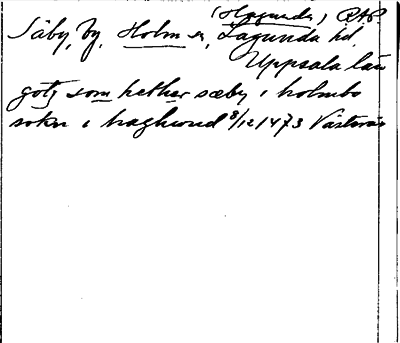 (Hagunda) RAP.
Säby, by, Holm sn, Lagunda hd,
Uppsala län
gotz som hether sæby i holmbo
sokn i haghund 8/12 1473 Västerås